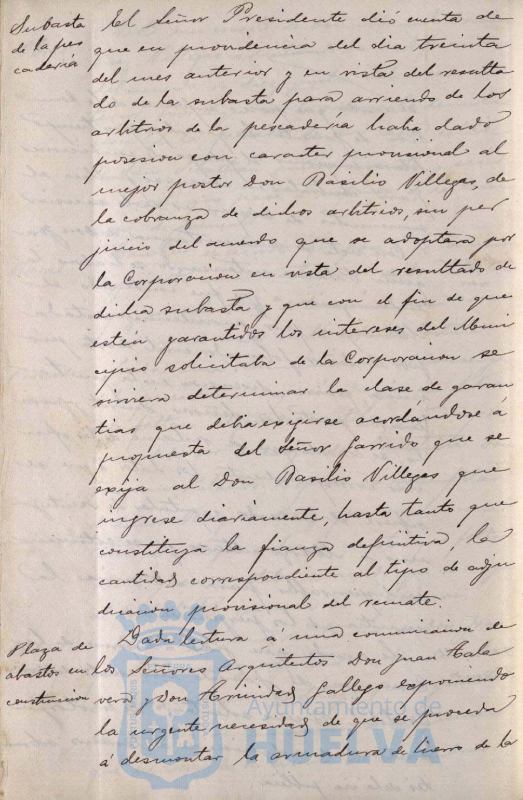 Subasta
de la pes
caderia
El Señor Presidente dió cuenta de
que en providencia del dia treinta
del mes anterior y en vista del resulta
do de la subasta para arriendo de los
arbitrios de la pescadería habia dado
posesion con caracter provisional al
mejor postor Don Basilio Villegas, de
la cobranza de dichos arbitrios, sin per
juicio del acuerdo que se adoptara por
la Corporacion en vista del resultado de
dicha subasta y que con el fin de que
esten garantidos los intereses del Muni
cipio solicitaba de la Corporacion se
sirviera determinar la clase de garan
tias que debia exijirse acordándose á
propuesta del Señor Garrido que se
exija al Don Basilio Villegas que
ingrese diariamente, hasta tanto que
constituya la fianza definitiva, la
cantidad correspondiente al tipo de adju
dicacion provisional del remate.
Plaza de
abastos en
construccion
Dada lectura á una comunicacion de
los Señores Arquitectos Don Juan Tala
vera y Don Trinidad Gallego exponiendo
la urgente necesidad de que se proceda
á desmontar la armadura de hierro de la
Ayuntamiento de
HUELVA